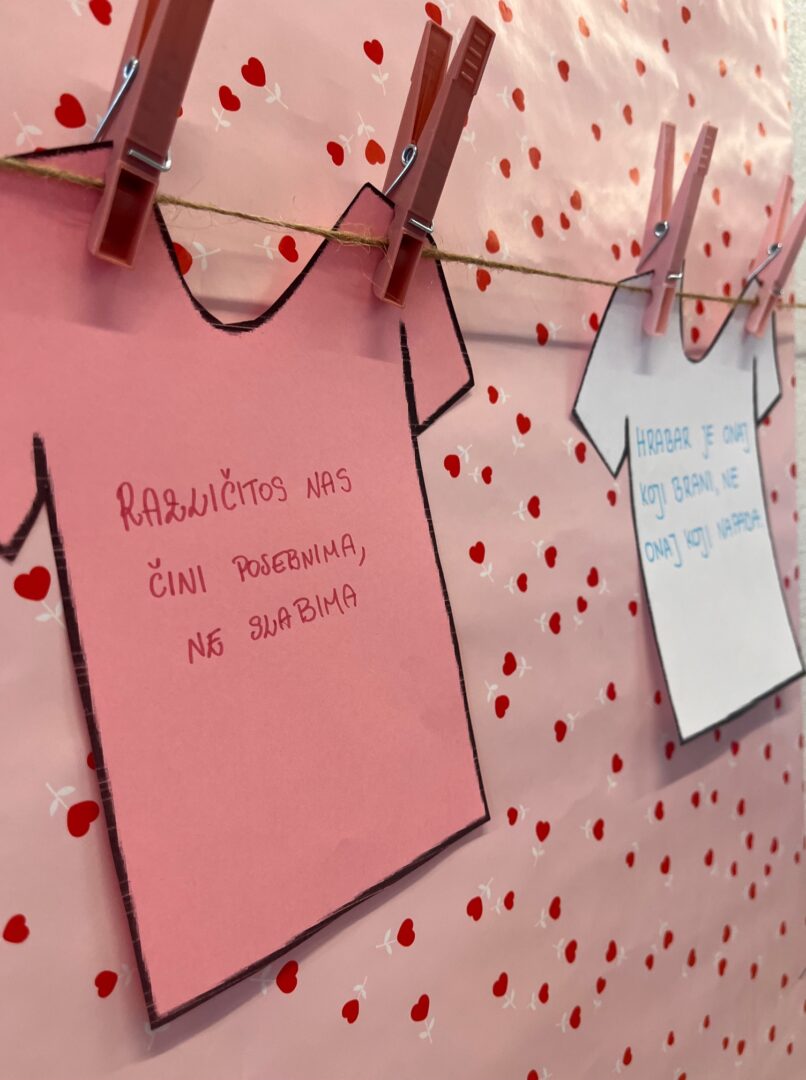 RAZLIČITOS NAS
ČINI POSEBNIMA,
NE SLABIMA
HRABAR JE ONAJ
KOJI BRANI, NE
ONAJ KOJI NAPADA.